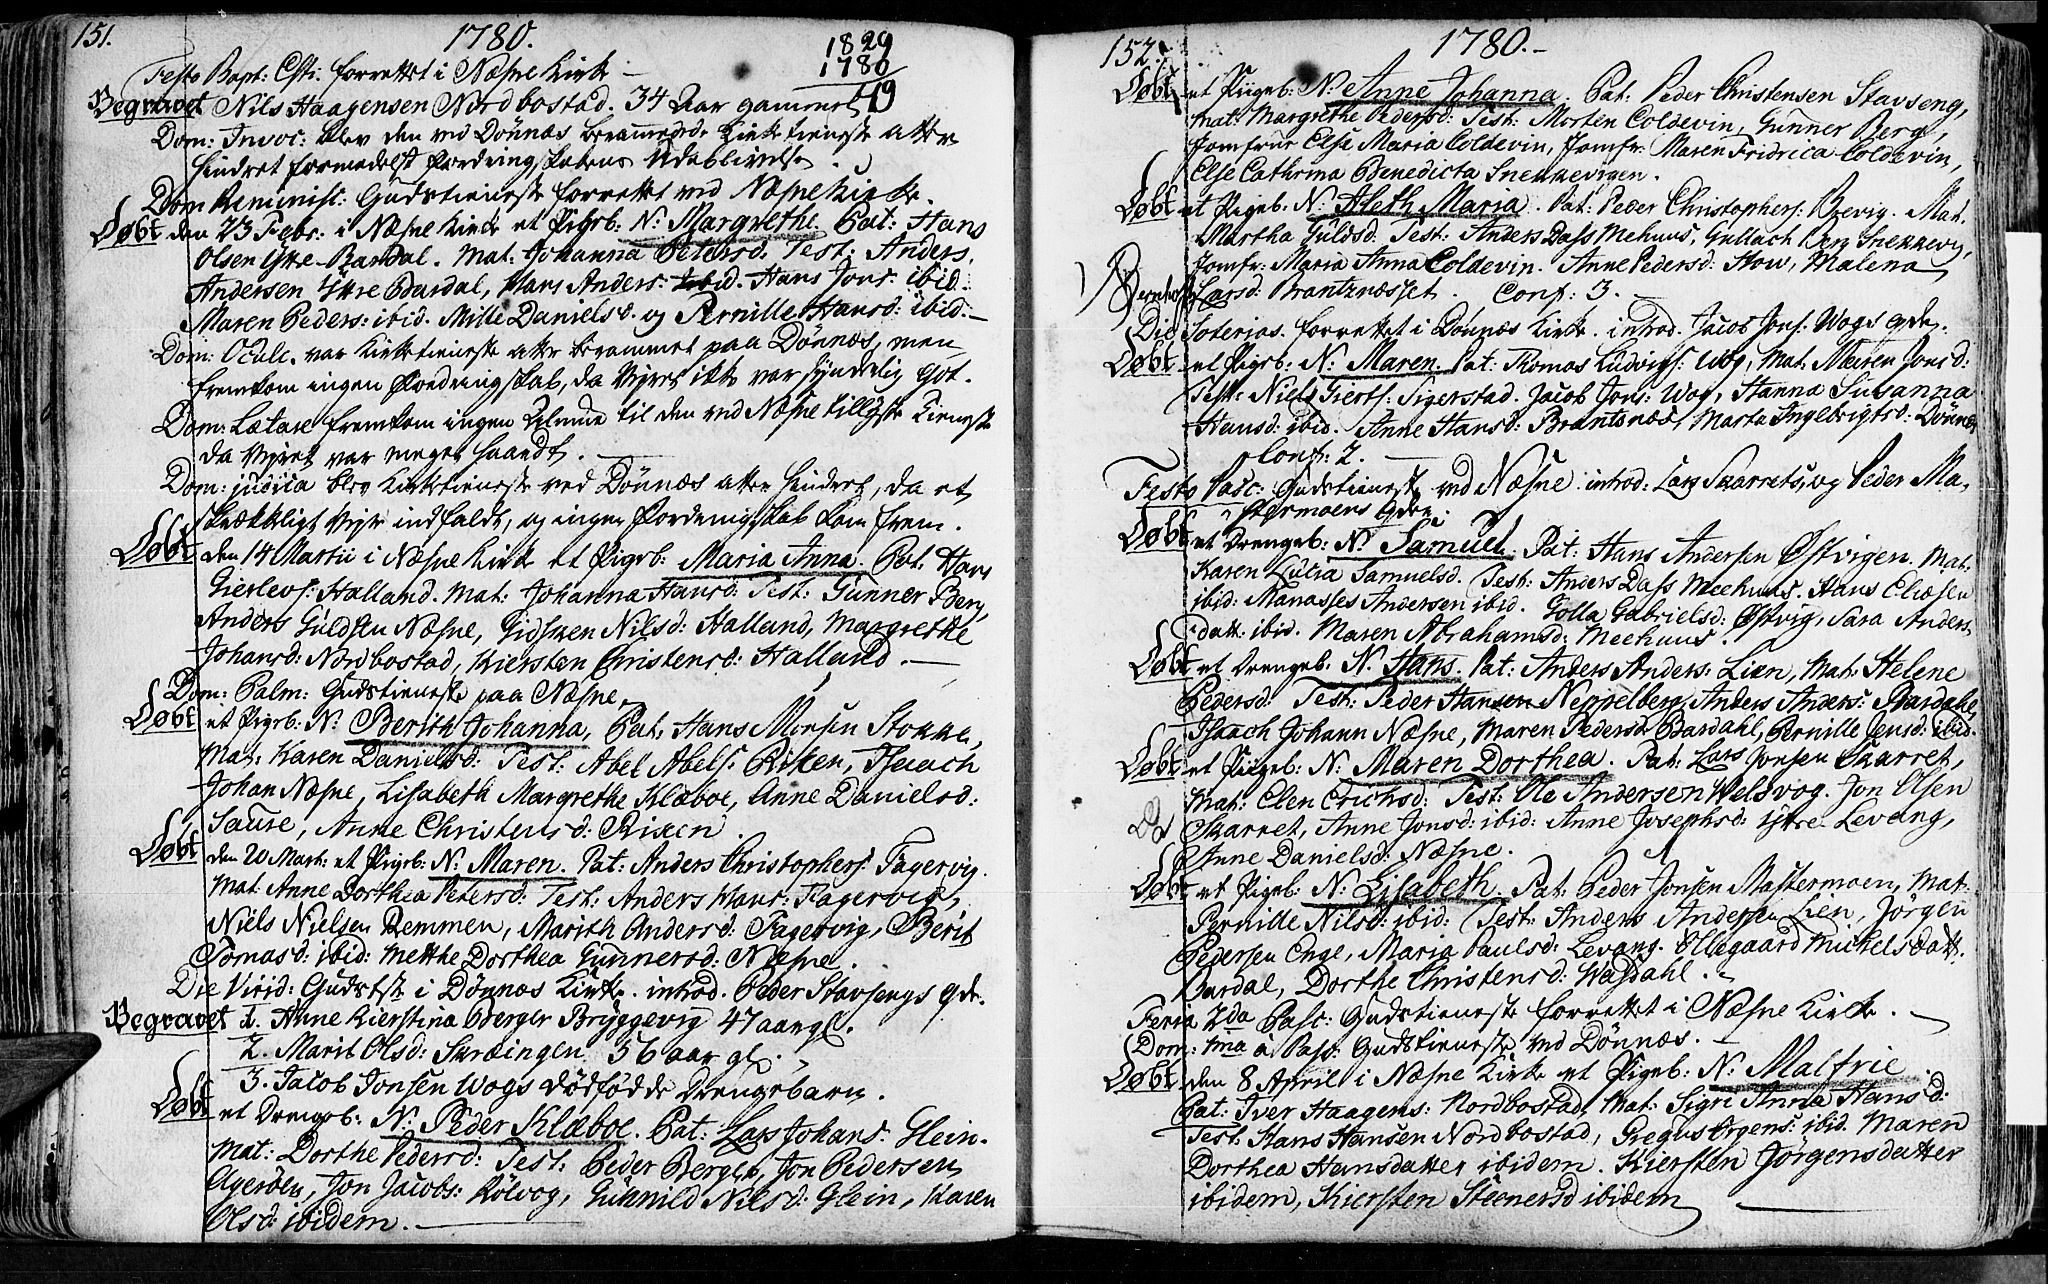 151.
1780.
1829
1780
49
Festo Bapt: Csti. forrettet i Næsne Kirke –
Begravet Nils Haagensen Nordbostad. 34 Aar gammel
Dom: Invoc: blev den ved Dönnæs berammede Kirketieneste atter
hindret formedelst Fordringskabens Udeblivelse.
Dom Reminisc: Gudstieneste forrettet ved Næsne Kirke.
Døbt den 23 Febr: i Næsne Kirke et Pigeb: N: Margrethe. Pat: Hans
Olsen Ytre Bardal. Mat: Johanna Petersd: Test: Anders
Andersen Ytre Bardal, Hans Anders: ibid. Hans Jons: ibid:
Maren Peders: ibid. Mille Danielsd. og Pernille Hansd: ibid: –
Dom: Oculi. var Kirketieneste atter berammet paa Dönnæs, men
fremkom ingen Fordringskab, da Vejret ikke var synderlig Got.
Dom: Lætare fremkom ingen Almue til den ved Næsne tillyste Tieneste
da Vejret var meget haardt.
Dom: judica blev Kirketieneste ved Dönnæs atter hindret, da et
skrækkeligt Vejr indfaldt, og ingen Fordringskab kom frem.
Døbt den 14 Martii i Næsne Kirke et Pigeb: Maria Anna. Pat: Hans
Gierlevs: Halland. Mat: Johanna Hansd: Test: Gunner Berg,
Anders Guldsen Næsne, Zidsken Nilsd: Halland, Margrethe
Johansd: Nordbostad, Kiersten Christensd: Halland. –
Dom: Palm: Gudstieneste paa Næsne.
Døbt et Pigeb: N: Berith Johanna, Pat: Hans Monsen Stokke,
Mat: Karen Danielsd: Test: Abel Abels: Riken, Isaach
Johan Næsne, Lisabeth Margrethe Klæboe, Anne Danielsd:
Saure, Anne Christensd: Rixen.
Døbt den 20 Mart: et Pigeb: N: Maren. Pat: Anders Christophers: Fagervig.
Mat: Anne Dorthea Petersd: Test: Anders Hans: Fagervig,
Niels Nielsen Remmen, Marith Andersd: Fagervig, Berit
Tomasd: ibid: Mette Dorthea Gunnersd: Næsne.
Die Virid: Gudstst: i Dönnæs Kirke. introd. Peder Stavsengs qde.
Begravet 1. Anne Kierstina Berger Bryggevig 47 aar gl.
2. Marit Olsd: Skræingen 56 aar gl.
3. Jacob Jonsen Wogs dödfödde Drengebarn.
Døbt et Drengeb: N: Peder Klæboe. Pat: Lars Johans: Glein.
Mat: Dorthe Pedersd: Test: Peder Berger, Jon Pedersen
Agerøen, Jon Jacobs: Rölvog, Gunnild Nilsd: Glein, Karen
Olsd: ibidem.
152.
1780. –
Døbt et Pigeb: N: Anne Johanna. Pat: Peder Christensen Stavseng,
Mat: Margrethe Pedersd: Test: Morten Coldevin, Gunner Berg,
Jomfrue Else Maria Coldevin, Jomfr: Maren Fridrica Coldevin,
Else Cathrina Benedicta Snekkevigen.
Døbt et Pigeb: N: Aleth Maria. Pat: Peder Christophers: Brevig. Mat.
Martha Guldsd: Test: Anders Dass Mehuus, Gullach Berg Snekkevig,
Jomfr: Maria Anna Coldevin. Anne Pedersd: How, Malena
Larsd: Brantznæsset. Conf: 3.
Die Soterias. forrettet i Dönnæs Kirke. introd. Jacob Jons: Wogs qde.
Døbt et Pigeb: N: Maren. Pat: Thomas Ludvigs: Wog, Mat: Maren Jonsd:
Test: Niels Giert: Sigerstad. Jacob Jons: Wog, Hanna Susanna
Hansd: ibid. Anne Hansd: Brantsnæs, Marta Ingebrigtsd: Dönnæs
Conf: 2. –
Festo Pasc: Gudstieneste ved Næsne. introd: Lars Skarrets, og Peder Ma-
stermoens qder.
Døbt et Drengeb: N: Samuel. Pat: Hans Andersen Østvigen. Mat:
Karen Lucia Samuelsd. Test: Anders Dass Meehuus. Hans Eliæsen
ibid: Manasses Andersen ibid. Golla Gabrielsd: Østvig, Sara Anders-
datt: ibid. Maren Abrahamsd: Meehuus.
Døbt et Drengeb: N: Hans. Pat: Anders Anders: Lien, Mat: Helene
Pedersd: Test: Peder Hansen Neppelberg, Anders Anders: Bardahl,
Isaach Johann Næsne, Maren Pedersd: Bardahl, Pernille Jensd: ibid.
Døbt et Pigeb: N: Maren Dorthea. Pat: Lars Jonsen Skarret,
Mat: Elen Erichsd: Test: Ole Andersen Welsvog. Jon Olsen
Skarret, Anne Jonsd: ibid: Anne Josephsd: ytre Levang,
Anne Danielsd: Næsne.
Døbt et Pigeb: N: Lisabeth. Pat: Peder Jonsen Mastermoen, Mat:
Pernille Nilsd: ibid: Test: Anders Andersen Lien, Jörgen
Pedersen Enge, Maria Paulsd: Levang. Ollegaard Mickelsdatt.
Bardal, Dorthe Christensd: Wasdahl.
Feria 2da Pasc: Gudstieneste forrettet i Næsne Kirke. –
Dom: 1ma a Pasc: Gudstieneste ved Dönnæs.
Døbt den 8 April i Næsne Kirke et Pigeb: N: Malfrie
Pat: Iver Haagens: Nordbostad, Mat: Sigri Anna Hansd:
Test: Hans Hansen Nordbostad, Pregus Ørgens: ibid. Maren
Dorthea Hansdatter ibidem. Kiersten Jörgensdatter
ibidem, Kiersten Steenersd ibidem